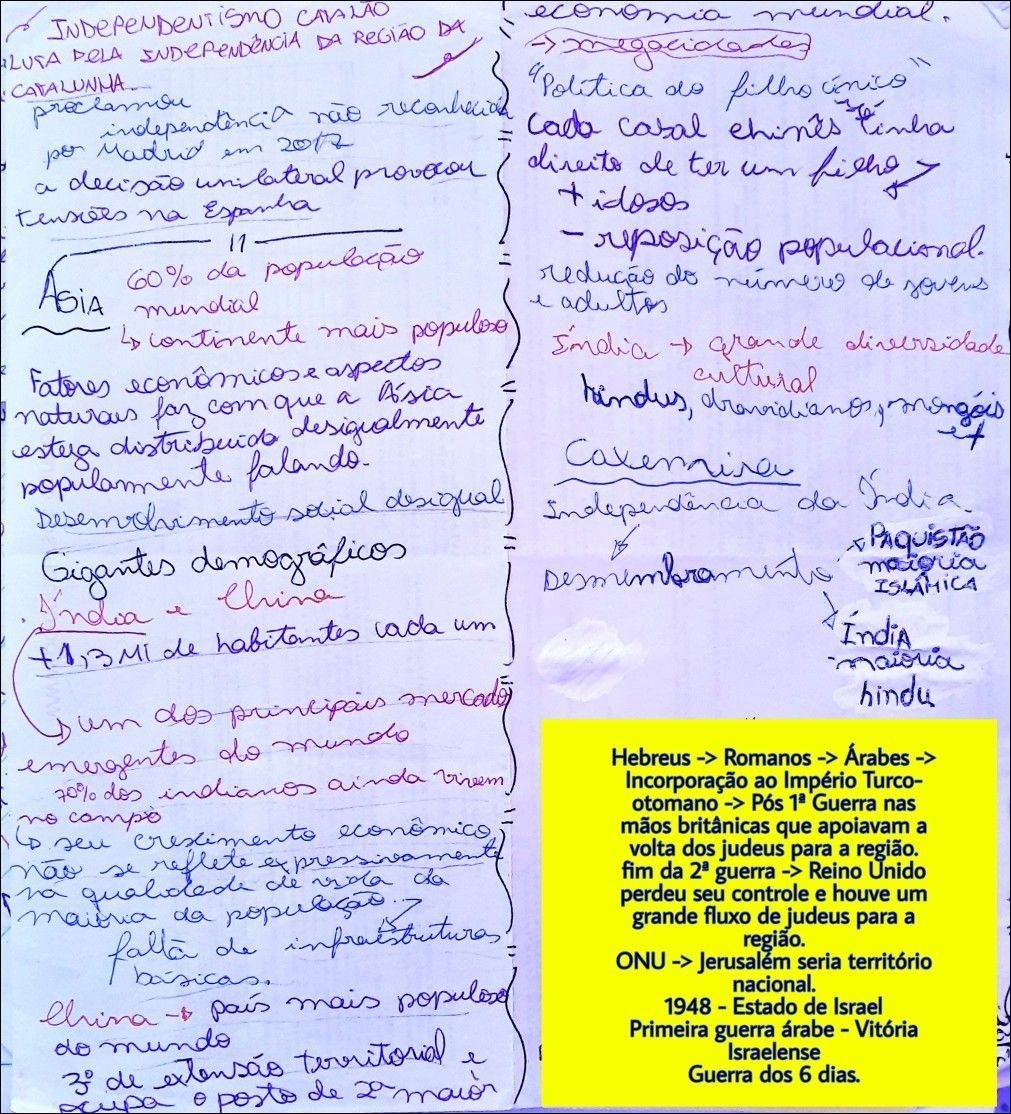 INDEPENDENTISMO CATALÃO
LUTA PELA INDEPENDÊNCIA DA REGIÃO DA
CATALUNHA.
proclamou
independência não reconhecida
por Madrid em 2017
a decisão unilateral provocou
tensões na Espanha
11
ÁSIA
60% da população
mundial
↳ continente mais populoso
Fatores econômicos e aspectos
naturais faz com que a Ásia
esteja distribuida desigualmente
populamente falando.
Desenvolvimento social desigual
Gigantes demográficos
Índia e China
+1,3 MI de habitantes cada um
↳ um dos principais mercado
emergentes do mundo
70% dos indianos ainda vivem
no campo
↳ seu crescimento econômico
não se reflete expressivamente
na qualidade de vida da
maioria da população.
falta de infraestruturas
básicas.
China → país mais populoso
do mundo
3º de extensão territorial e
ocupa o posto de 2ª maior
economia mundial.
→ megacidades
"Política do filho único"
Cada casal chinês só tinha
direito de ter um filho
+ idosos
- reposição populacional.
redução do número de jovens
e adultos
Índia → grande diversidade
cultural
hindus, dravidianos, mongóis
e +
Caxemira
Independência da Índia
Desmembramento
PAQUISTÃO
maioria
ISLÂMICA
ÍndiA
maioria
hindu
Hebreus -> Romanos -> Árabes ->
Incorporação ao Império Turco-
otomano -> Pós 1ª Guerra nas
mãos britânicas que apoiavam a
volta dos judeus para a região.
fim da 2ª guerra -> Reino Unido
perdeu seu controle e houve um
grande fluxo de judeus para a
região.
ONU -> Jerusalém seria território
nacional.
1948 - Estado de Israel
Primeira guerra árabe - Vitória
Israelense
Guerra dos 6 dias.